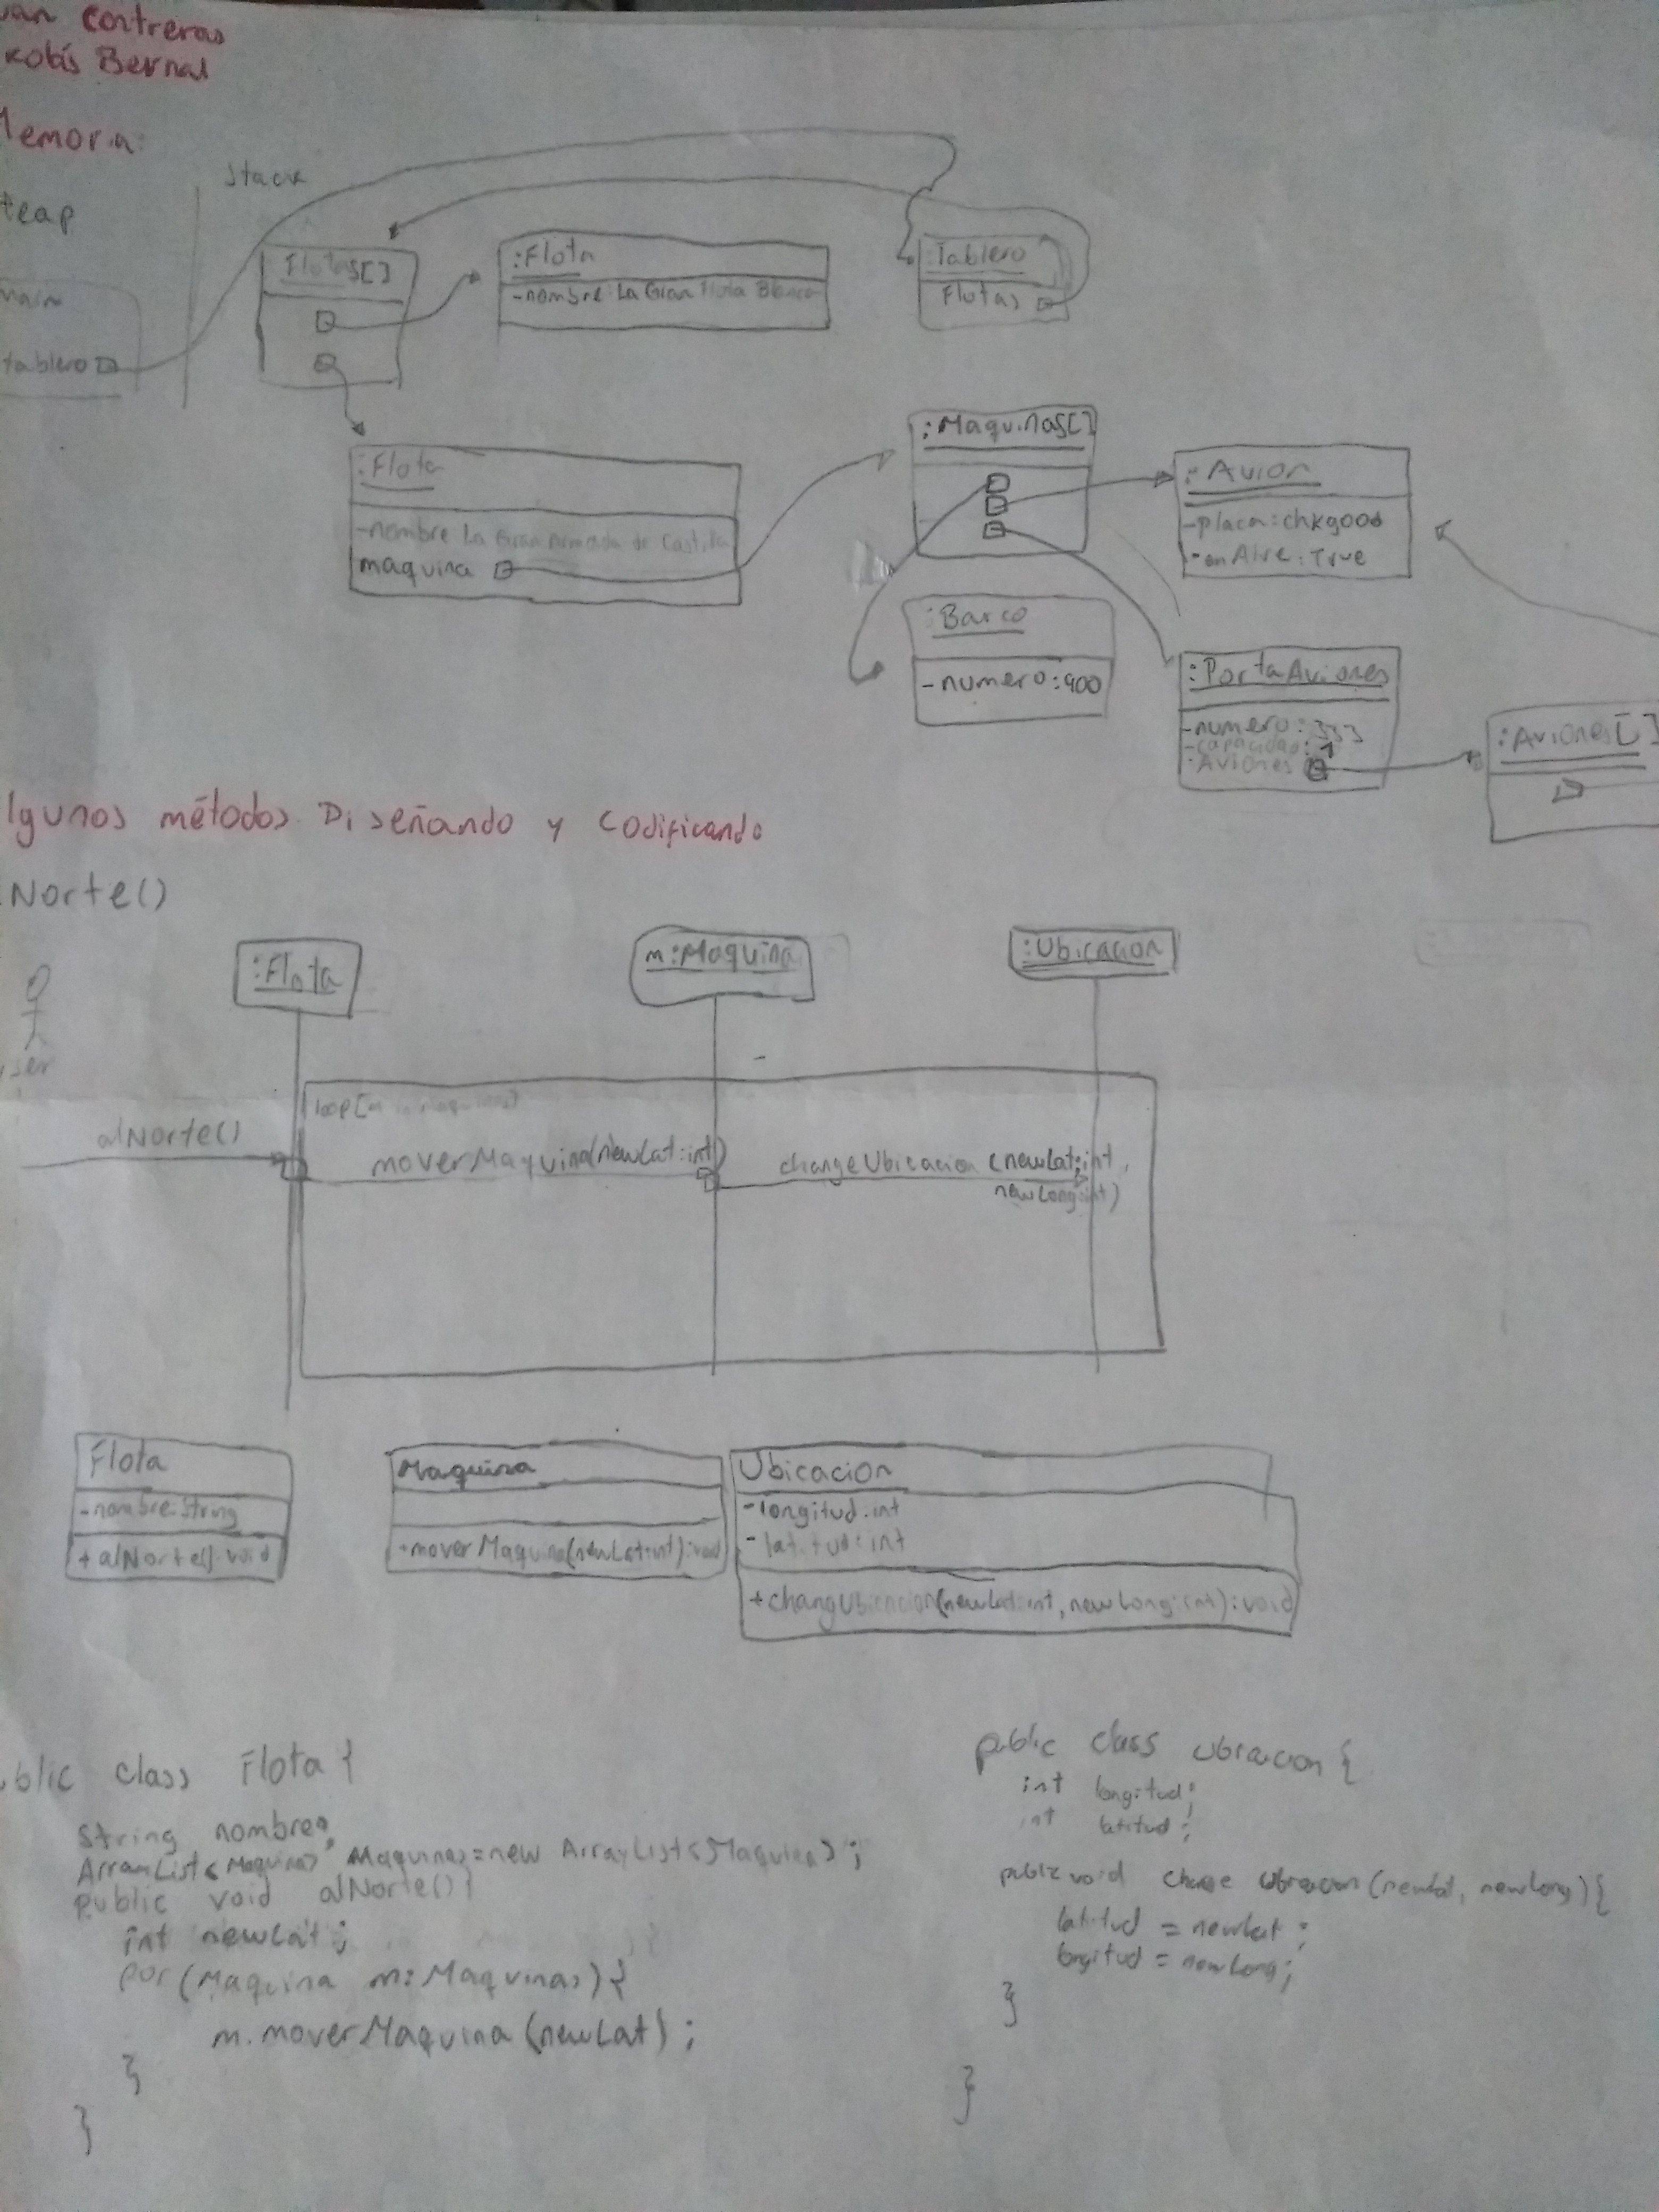 uan Contreras
kobis Bernal
Memoria:
Stack
Heap
main
tablero
Flotas[]
:Flota
-nombre: La Gran Flota Blanca
:Tablero
Flotas
:Flota
-nombre La Gran Armada de Castilla
maquina
:Maquinas[]
:Avion
-placa: chkgood
-enAire: True
:Barco
-numero: 900
:PortaAviones
-numero: 333
-capacidad: 1
-Aviones
:Aviones[]
lgunos métodos. Diseñando y codificando
Norte()
:Flota
m:Maquina
:Ubicacion
ser
loop[m in maquinas]
alNorte()
moverMaquina(newLat:int)
changeUbicacion (newLat:int,
newLong:int)
Flota
-nombre:String
+alNorte():void
Maquina
+moverMaquina(newLat:int):void
Ubicacion
-longitud:int
-latitud:int
+changUbicacion(newLat:int, newLong:int):void
ublic class Flota {
String nombre;
ArrayList<Maquina> Maquinas=new ArrayList<Maquina>;
public void alNorte(){
int newLat;
por(Maquina m:Maquinas){
m.moverMaquina(newLat);
}
}
public class Ubicacion {
int longitud;
int latitud;
public void change Ubicacion(newLat, newLong){
latitud = newLat;
longitud = newLong;
}
}